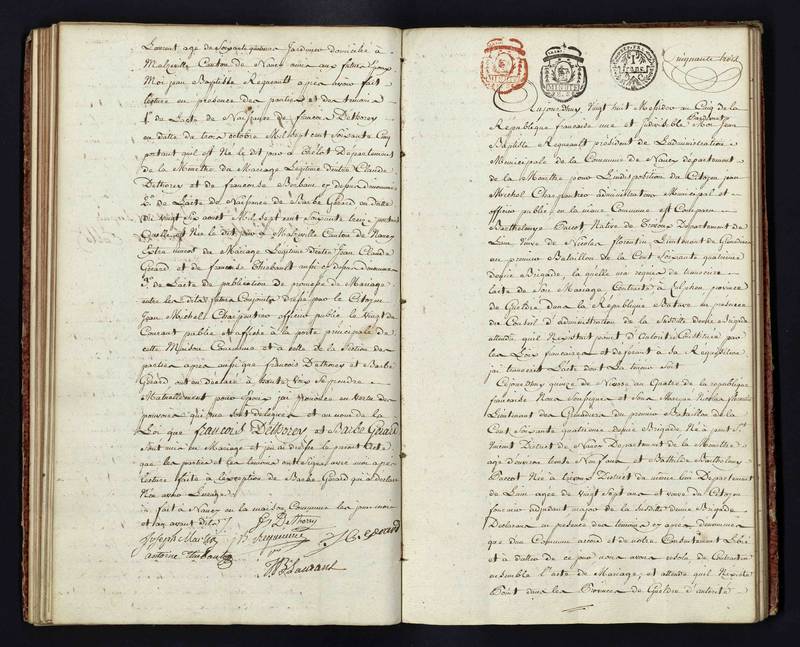 Laurent agé de Soixante Jardinier domicilié à
Malzeville Canton de Nancy amis aux futurs Epoux
Moi jean Baptiste Regneault après avoir fait
lecture en présence des parties et des temoins
1° de Lacte de Naissance de françois Dethorey
en datte de trois octobre Mil Sept cent Soixante Cinq
portant quil est Né le dit jour à Département
de la Meurthe du Mariage Légitime d'entre Claude
Dethorey et de françoise Barbare cy dessus denommés
2° de Lacte de Naissance de Barbe Gérard en datte
de vingt Six aout Mil Sept cent Soixante portant
quelle est Née le dit jour à Malzeville Canton de Nancy
Extra muros de Mariage Légitime d'entre Jean Claude
Gérard et de françoise Thiebault aussi cy dessus denommés
3° de Lacte de publication de promesse de Mariage
entre les dits futurs Conjoints dressé par le Citoyen
Jean Michel Charpentier officier public le Vingt de
Courant publié et affiché à la porte principale de
cette Maison Commune et à celle de la Section des
parties après aussi que françois Dethorey et Barbe
Gérard ont eu déclaré à haute voix Se prendre
Mutuellement pour Epoux jai prononcé en vertu des
pouvoirs qui me sont délégués et au nom de la
Loi que françois Dethorey et Barbe Gérard
Sont unis en Mariage et jai dressé le présent Acte
que les parties et les temoins ont Signé avec moi après
lecture faite à lexception de Barbe Gérard qui a déclaré
Ne
fait à Nancy en la maison Commune les jour mois
et an avant dits
f Dethorey
Joseph Martin
J C Gerard
antoine thiebault
Laurant
MINUTE
MINUTE
1 franc
Cinquante trois
Aujourdhuy Vingt huit Messidor an Cinq de la
République française une et indivisible Pardevant Moi Jean
Baptiste Regneault président de Ladministration
Municipale de la Commune de Nancy département
de la Meurthe pour Lindisposition du Citoyen jean
Michel Charpentier administrateur Municipal et
officier public en la même Commune est Comparue
Barthelemye Pacot Native de Département de
Veuve de Nicolas florentin Lieutenant de Grenadiers
au premier Bataillon de la Cent Soixante quatrieme
demie Brigade, la quelle ma requis de transcrire
lacte de Son Mariage Contracté à Zutphen province
de Gueldre dans la République Batave en présence
du Conseil d'administration de la Susditte demie Brigade
attendu quil Nexistait point d'autorité Constituée par
les Loix françaises et déférant à Sa Requisition
jai transcrit Lacte dont La teneur Suit
Cejourdhuy quinze de Nivose an Quatre de la republique
française Nous Soussignés et Sous Marque Nicolas florentin
Lieutenant des Grenadiers du premier Bataillon de la
Cent Soixante quatrieme demie Brigade Né à pont St
District de Nancy Département de la Meurthe
agé d'environ trente Neuf ans et Bathilde Barthelemy
Paccot Née à District du même lieu Département
de agée de vingt Sept ans et veuve du Citoyen
adjudant major de la Susdite demie Brigade
Déclarons en présence des temoins cy après denommés
que d'un Commun accord et de notre Consentement Libre
et à datter de ce jour nous avons résolu de Contracter
ensemble l'acte de Mariage, et attendu quil Nexiste
Point dans les Provinces de Gueldre d'autorité